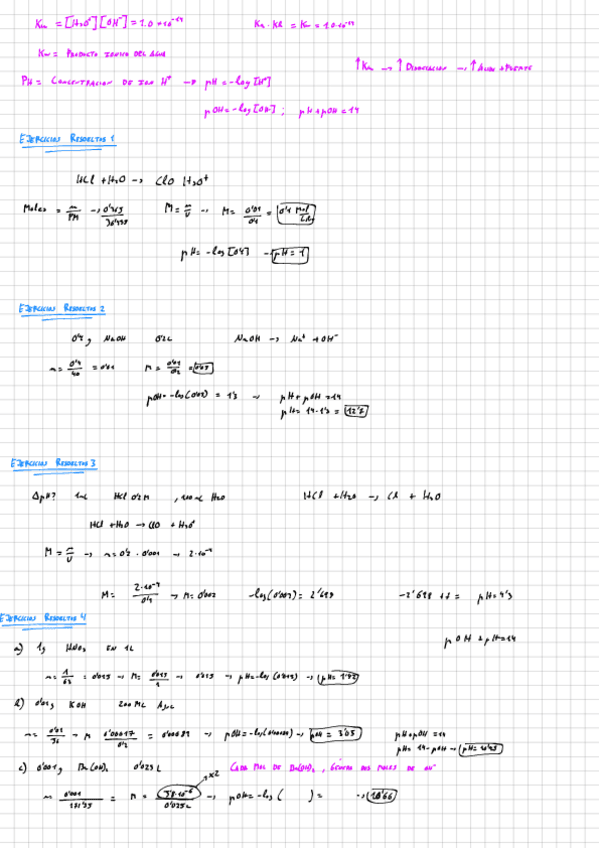 Kw = [H₃O⁺][OH⁻] = 1.0 × 10⁻¹⁴ Ka · Kb = Kw = 1.0·10⁻¹⁴
Kw = Producto Ionico del Agua
↑Ka → ↑Disociacion → ↑Acido + Fuerte
PH = Concentracion de Ion H⁺ → pH = -log[H⁺]
pOH = -log[OH⁻] ; pH + pOH = 14
Ejercicios Resueltos 1
HCl + H₂O → ClO H₃O⁺
Moles = m/PM → 0'365/36'439 M = n/V → M = 0'01/0'1 = 0'1 mol
pH = -log[0'1] → pH = 1
Ejercicios Resueltos 2
0'4g NaOH 0'2L NaOH → Na⁺ + OH⁻
n = 0'4/40 = 0'01 M = 0'01/0'2 =
pOH = -log(0'02) = 1'3 → pH + pOH = 14
pH = 14 - 1'3 = 12'7
Ejercicios Resueltos 3
ΔpH? 1mL HCl 0'2M , 100mL H₂O HCl + H₂O → Cl + H₂O
HCl + H₂O → ClO + H₃O⁺
M = n/V → n = 0'2 · 0'001 → 2·10⁻⁴
M = 2·10⁻⁴/0'1 → M = 0'002 -log(0'002) = 2'699 -2'698 + 7 = pH = 4'3
Ejercicios Resueltos 4
pOH + pH = 14
a) 1g HNO₃ en 1L
n = 1/63 = 0'015 → M = 0'015/1 → 0'015 → pH = -log(0'015) →
b) 0'01g KOH 200 mL Agua
pOH = 3'05 pH + pOH = 14
pH = 14 - pOH →
c) 0'001g Ba(OH)₂ 0'025L Cada mol de Ba(OH)₂, genera dos moles de OH⁻
×2
n = 0'001 = M = 58·10⁻⁶/0'025L → pOH = -log( ) = → 10'66